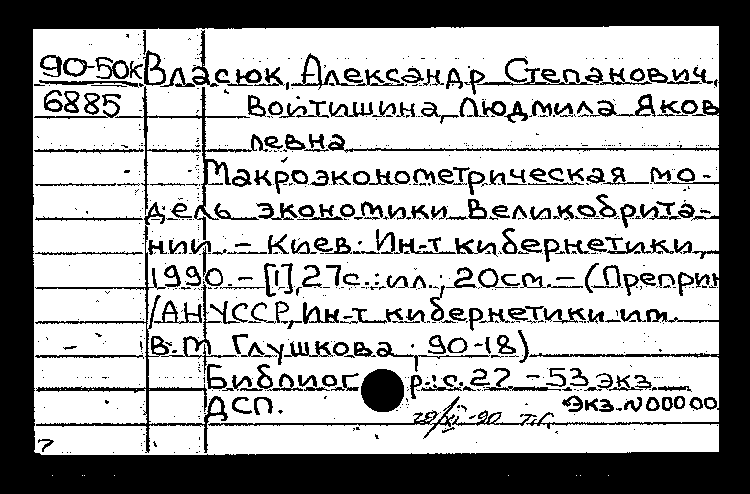 90-50к Власюк, Александр Степанович,
6885 Войтишина, Людмила Яков
левна
Макроэконометрическая мо-
дель экономики Великобрита-
нии. – Киев: Ин-т кибернетики,
1990. – [1], 27с.: ил.; 20см. – (Преприн
/АН УССР, Ин-т кибернетики им.
В.М Глушкова ; 90-18)
Библиог р.: с.27 – 53 экз
ДСП. Экз. N 00000
-90 Т.Г.